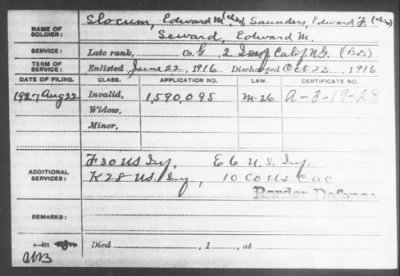 NAME OF SOLDIER: Slocum, Edward M (alias) Saunders, Edward F. (alias)
Seward, Edward M.
SERVICE: Late rank, Co. G, 2 Inf Calif N.G. (B.S.)
TERM OF SERVICE: Enlisted June 22, 1916 Discharged Oct 23, 1916
DATE OF FILING. CLASS. APPLICATION NO. LAW. CERTIFICATE NO.
1927 Aug 22 Invalid, 1,590,095 M-26 A-3-19-28
Widow,
Minor,
ADDITIONAL SERVICES: F 30 US Inf, E 6 U.S. Inf.
K 28 U.S. Inf, 10 Co US CAC
Border Defense
REMARKS:
Died , 1 , at